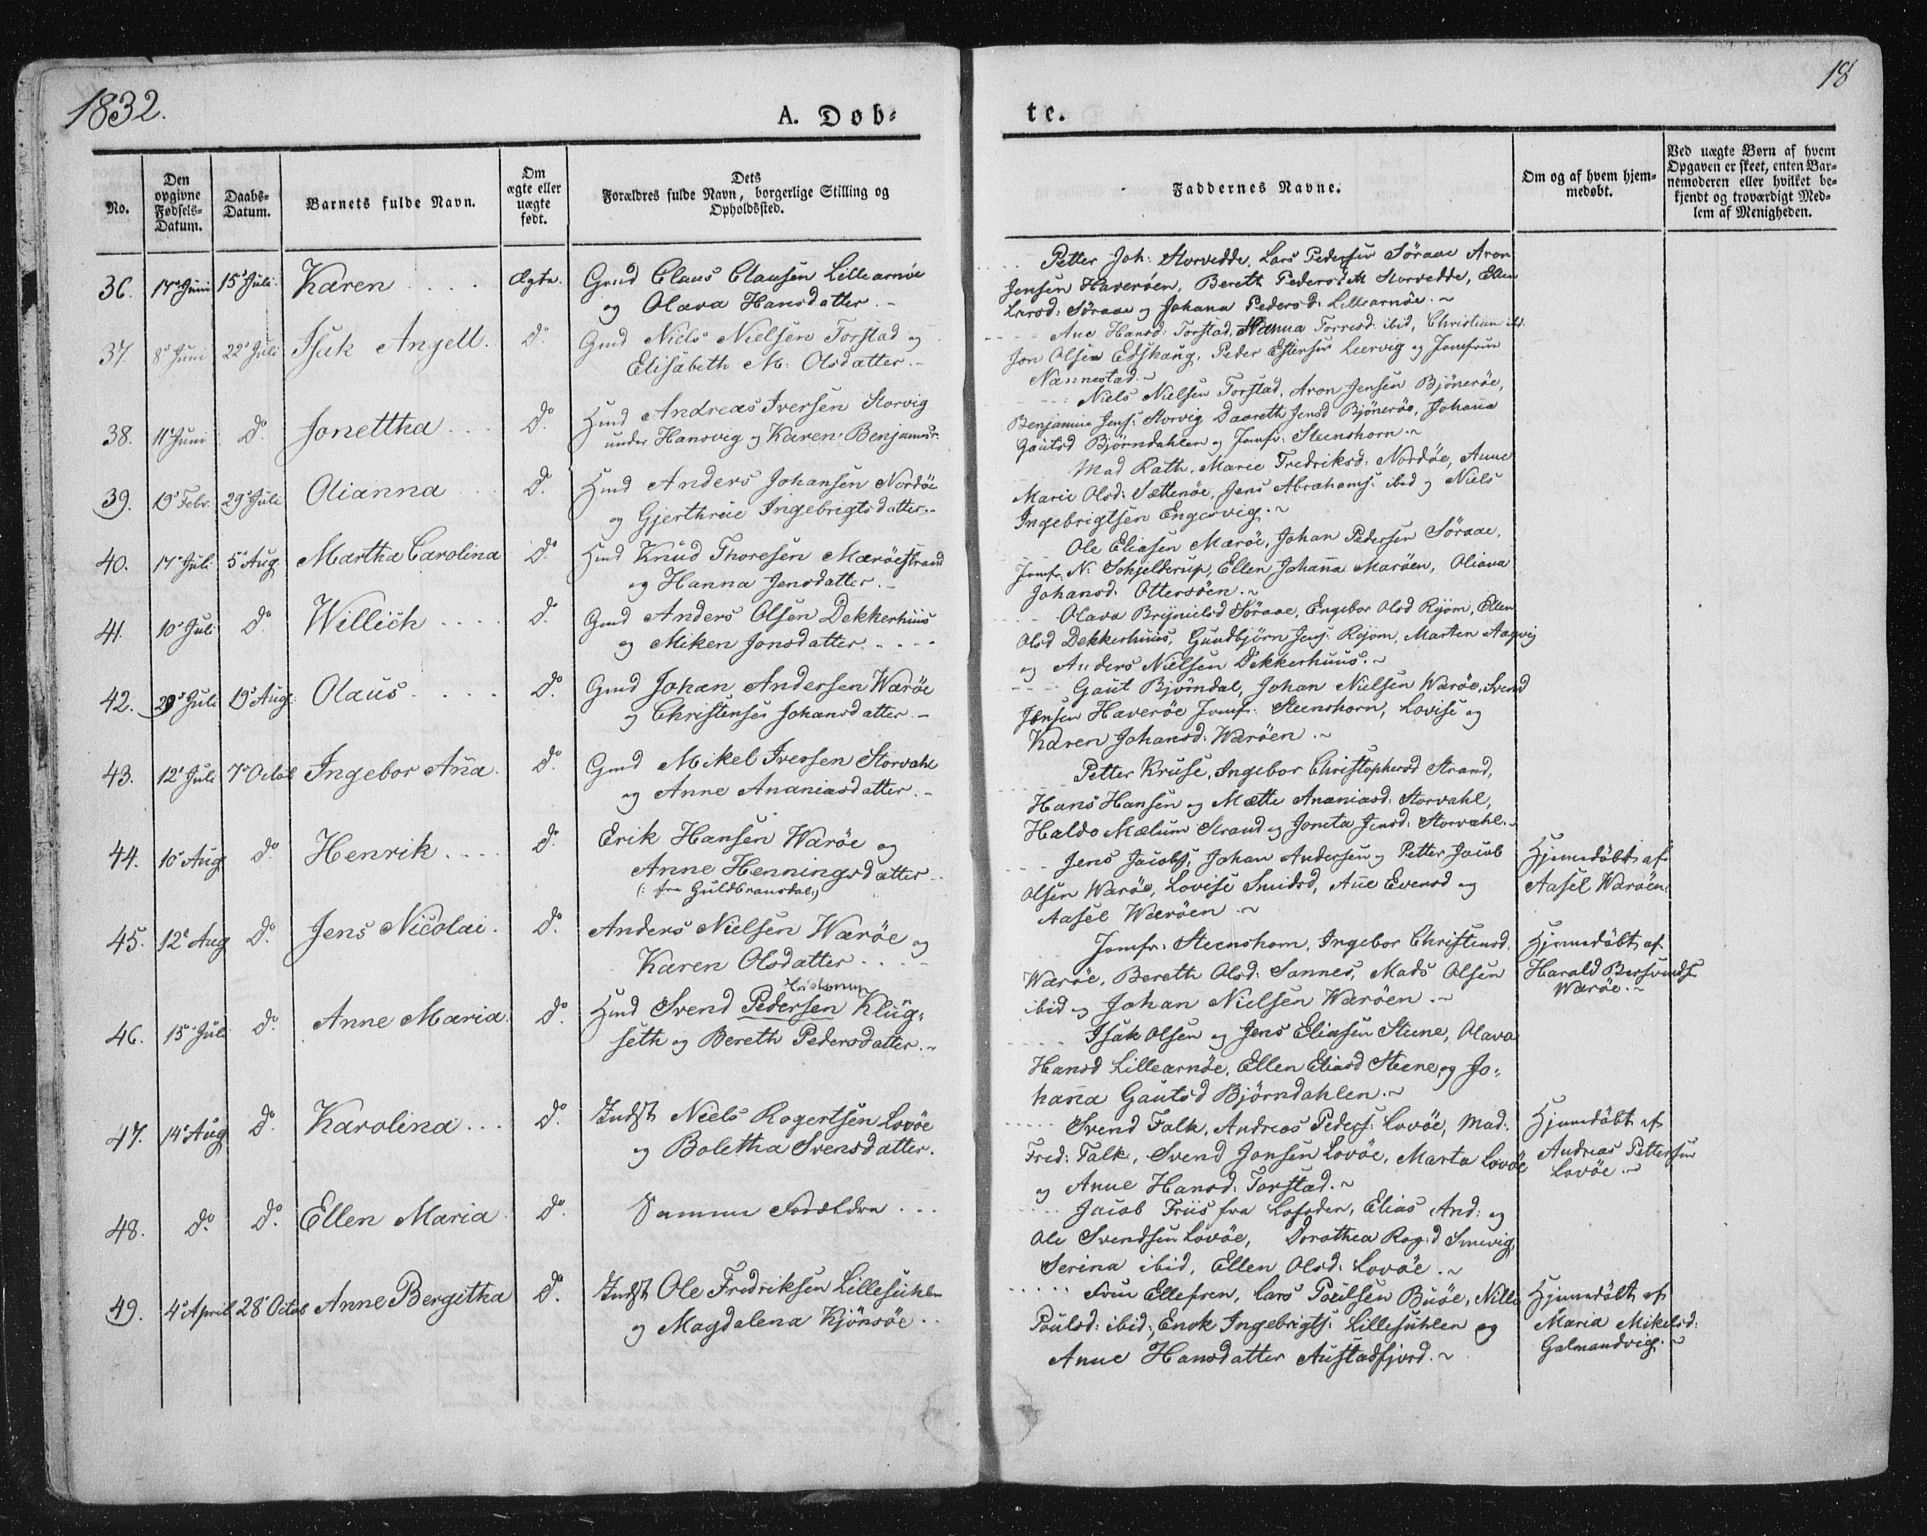 1832.
A. Døb-
te.
18
No.
Den opgivne Fødsels-Datum.
Daabs-Datum.
Barnets fulde Navn.
Om ægte eller uægte født.
Dets Forældres fulde Navn, borgerlige Stilling og Opholdssted.
Faddernes Navne.
Om og af hvem hjem-medøbt.
Ved uægte Børn af hvem Opgaven er skeet, enten Bar-nemoderen eller hvilket be-kjendt og troværdigt Med-lem af Menigheden.
36. 17de Juni 15de Juli Karen Ægte. Gmd Claus Clausen Lillearnøe
og Olava Hansdatter.
Petter Joh: Storvedde, Lars Pedersen Søraae Aron
Jensen Haverøen, Bereth Pedersd: Storvedde, Ellen
Larsd: Søraae og Johana Pedersd: Lillearnøe.
37. 8de Juni 22de Juli Isak Angell. Do Gmd Niels Nielsen Torstad og
Elisabeth M: Olsdatter.
Ane Hansd: Torstad, Hanna Torresd: ibid, Christian ib.
Jon Olsen Edskaug, Peder Estensen Leervig og Jomfrue
Nannestad.
38. 11te Juni Do Jonettha Do Hmd Andreas Iversen Storvig
under Hansvig og Karen Benjamin:
Niels Nielsen Torstad, Aron Jensen Bjönerøe,
Benjamin Jens: Storvig Daareth Jensd Bjönerøe, Johana
Gautsd Bjørndahlen og Jomfr: Steenshorn.
39. 19de Febr. 29de Juli Olianna Do Hmd Anders Johansen Nordøe
og Gjerthrue Ingebrigtsdatter.
Mad Rath, Marie Fredriksd: Nordøe, Anne
Marie Olsd: Sættenøe, Jens Abrahams: ibid og Niels
Ingebrigtsen Engesvig.
40. 17de Juli 5te Aug. Martha Carolina Do Hmd Knud Thoresen Mærøestrand
og Hanna Jensdatter.
Ole Eliasen Mærøe, Johan Pedersen Søraae,
Jomfr. N: Schjelderup, Ellen Johana Marøen, Oliana
Johansd: Ottersøen.
41. 10de Juli Do Willich Do Gmd Anders Olsen Dekkerhuus
og Miken Jonsdatter.
Olava Brynielsd Søraae, Engebor Olsd Ryom, Ellen
Olsd Dekkerhuus, Gundbjørn Jens: Ryom, Marten Aagvig
og Anders Nielsen Dekkerhuus.
42. 29de Juli 19de Aug: Olaus Do Gmd Johan Andersen Warøe
og Christense Johansdatter.
Gaut Bjørndal, Johan Nielsen Warøe, Svend
Jensen Haverøe Jomfr: Steenshorn, Lovise og
Karen Johansd: Warøen.
43. 12te Juli 7de Octob Ingebor Ana. Do Gmd Mikel Iversen Storvahl
og Anne Ananiasdatter.
Petter Kruse, Ingebor Christophersd Strand,
Hans Hansen og Mætte Ananiasd: Storvahl,
Haldo Mælum Strand og Joneta Jensd: Storvahl.
44. 10de Aug Do Henrik Do Erik Hansen Warøe og
Anne Henningsdatter
(: fra Guldbransdal:)
Jens Jacobs: Johan Andersen og Petter Jacob
Olsen Warøe, Lovise Smidsd, Ane Evensd og
Aasel Warøen
Hjemedøbt af
Aasel Warøen.
45. 12te Aug Do Jens Nicolai. Do Anders Nielsen Warøe og
Karen Olsdatter
Jomfr: Steenshorn, Ingebor Christensd.
Warøe, Bereth Olsd: Sannes, Mads Olsen
ibid og Johan Nielsen Warøen.
Hjemedøbt af
Harald Bersvends
Warøe.
46. 15de Juli Do Anne Maria. Do Hmd Svend Pedersen Klüg-
seth og Bereth Pedersdatter.
Isak Olsen og Jens Eliasen Stene, Olava
Hansd Lillearnøe, Ellen Eliasd Steene og Jo-
hana Gautsd Bjørndahlen.
47. 14de Aug Do Karolina Do Indst Niels Rogertsen Lovøe
og Boletha Svensdatter.
Svend Falk, Andreas Peders: Lovøe, Mad:
Fred: Falk, Svend Jonsen Lovøe, Marta Lovøe
og Anne Hansd: Torstad.
Hjemedøbt af
Andreas Pettersen
Lovøe.
48. Do Do Ellen Maria Do Samme Forældre
Jacob Friis fra Lofoden, Elias And: og
Ole Svendsen Lovøe, Dorothea Rog:d Smevig,
Serina ibid, Ellen Olsd: Lovøe.
49. 4de April 28de Octob Anne Bergitha Do Indst Ole Fredriksen Lillesuhlen
og Magdalena Kjønsøe
Sven Ellefsen, Lars Poulsen Buøe, Nille
Poulsd: ibid, Enok Ingebrigts: Lillesuhlen og
Anne Hansdatter Austadfjord.
Hjemedøbt af
Maria Mikelsd:
Galmandvig.